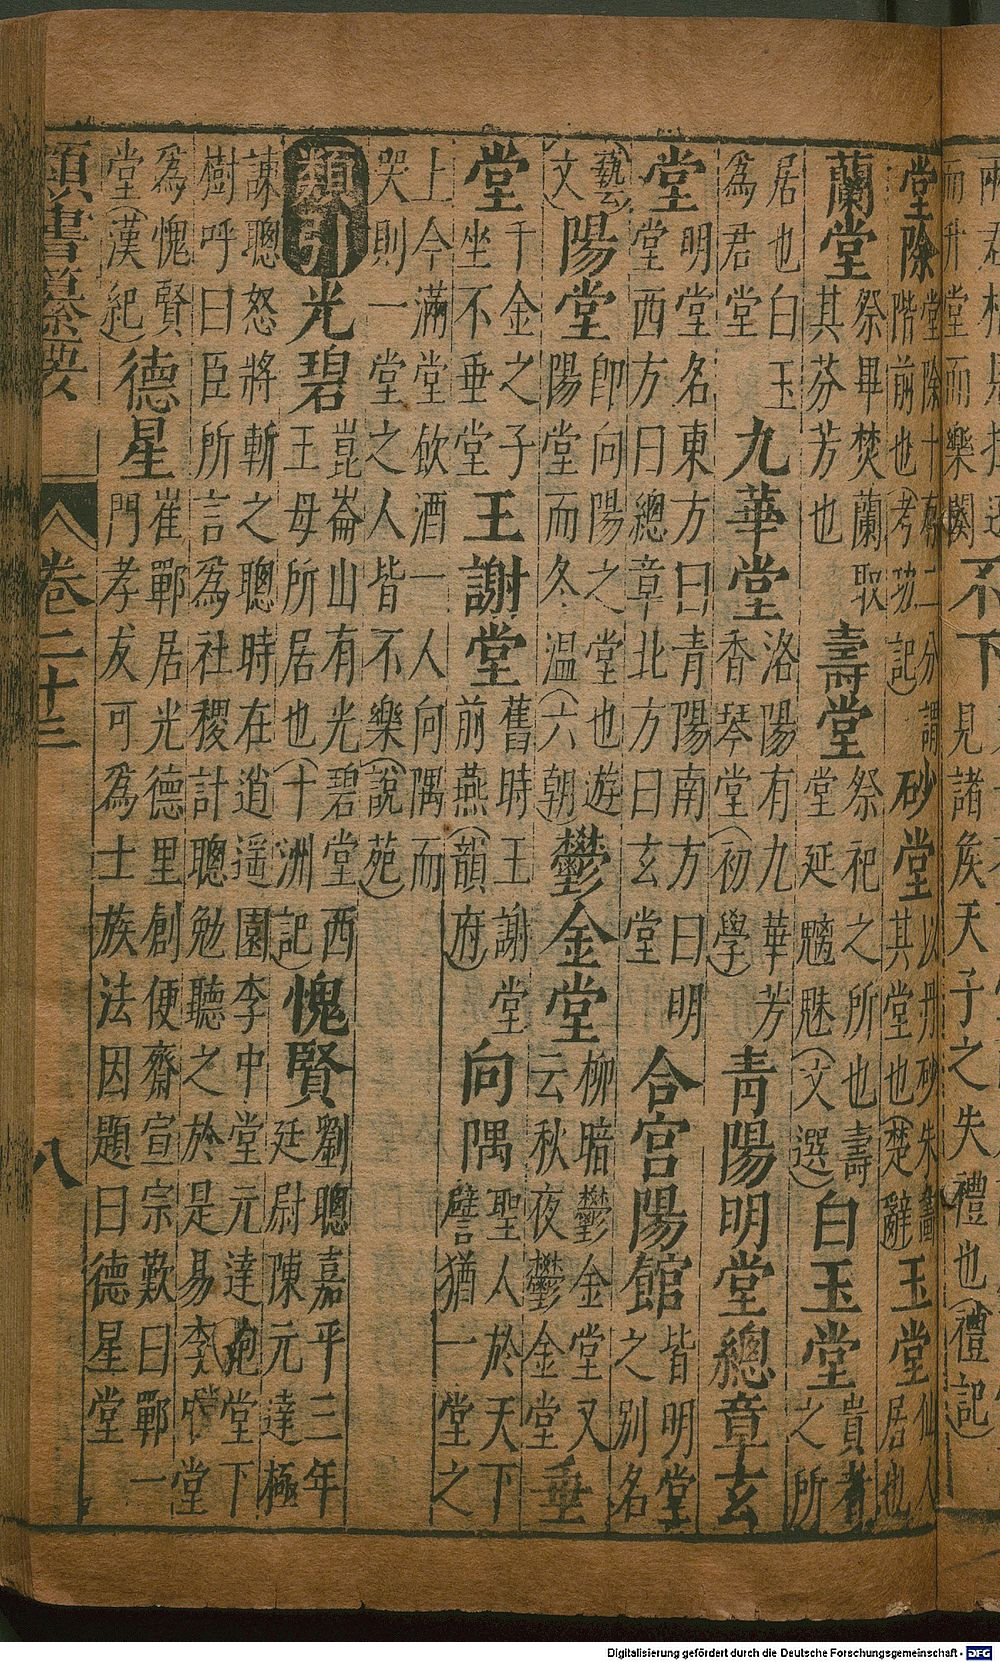 而升堂而樂闋
不下
見諸侯天子之失禮也（禮記）
堂除
堂除十有二分謂
階前也（考功記）
砂堂
以丹砂朱畫
其堂也（楚辭）
玉堂
仙人
居也
蘭堂
祭畢焚蘭取
其芬芳也
壽堂
祭祀之所也壽
堂延魑魅（文選）
白玉堂
貴者
之所
居也白玉
為君堂
九華堂
洛陽有九華芳
香琴堂（初學）
青陽明堂總章玄
堂
明堂名東方曰青陽南方曰明
堂西方曰總章北方曰玄堂
合宮陽館
皆明堂
之別名
（藝
文）
陽堂
卽向陽之堂也遊
陽堂而冬温（六朝）
鬱金堂
柳暗鬱金堂又
云秋夜鬱金堂
垂
堂
千金之子
坐不垂堂
王謝堂
舊時王謝堂
前燕（韻府）
向隅
聖人於天下
譬猶一堂之
上今滿堂飲酒一人向隅而
哭則一堂之人皆不樂（說苑）
類引
光碧
崑崙山有光碧堂西
王母所居也（十洲記）
愧賢
劉聰嘉平三年
廷尉陳元達極
諫聰怒將斬之聰時在逍遥園李中堂元達抱堂下
樹呼曰臣所言為社稷計聰勉聽之於是易李中堂
為愧賢
堂（漢紀）
德星
崔鄲居光德里創便齋宣宗歎曰鄲一
門孝友可為士族法因題曰德星堂
類書纂要
卷二十三
八
Digitalisierung gefördert durch die Deutsche Forschungsgemeinschaft - DFG